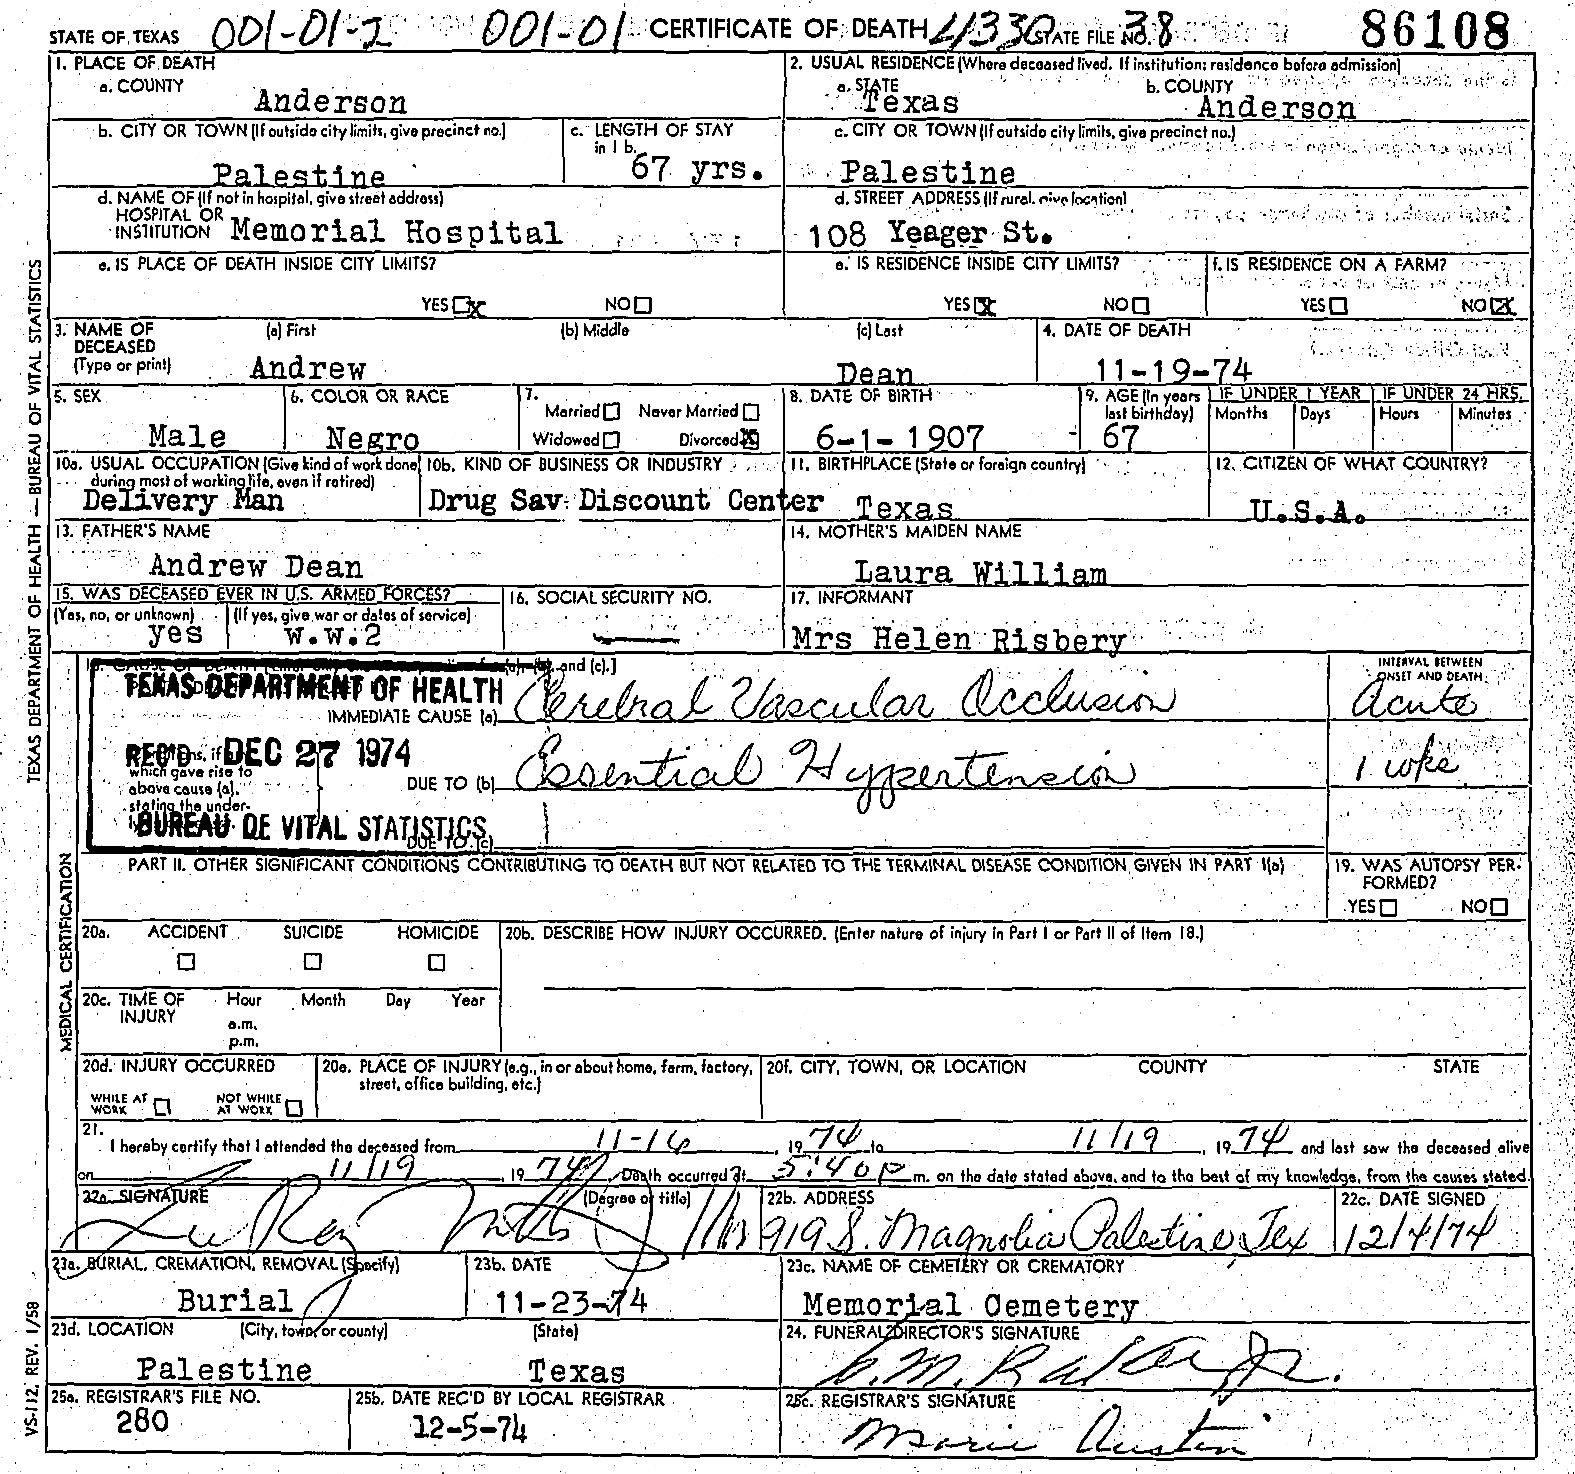 STATE OF TEXAS 001-01-2 001-01 CERTIFICATE OF DEATH 4330 STATE FILE NO. 38 86108
1. PLACE OF DEATH
a. COUNTY
Anderson
2. USUAL RESIDENCE (Where deceased lived. If institution: residence before admission)
a. STATE
Texas
b. COUNTY
Anderson
b. CITY OR TOWN (If outside city limits, give precinct no.)
Palestine
c. LENGTH OF STAY
in 1 b.
67 yrs.
c. CITY OR TOWN (If outside city limits, give precinct no.)
Palestine
d. NAME OF (If not in hospital, give street address)
HOSPITAL OR
INSTITUTION Memorial Hospital
d. STREET ADDRESS (If rural, give location)
108 Yeager St.
e. IS PLACE OF DEATH INSIDE CITY LIMITS?
YES x NO
e. IS RESIDENCE INSIDE CITY LIMITS?
YES X NO
f. IS RESIDENCE ON A FARM?
YES NO X
3. NAME OF
DECEASED
(Type or print)
(a) First
Andrew
(b) Middle
(c) Last
Dean
4. DATE OF DEATH
11-19-74
5. SEX
Male
6. COLOR OR RACE
Negro
7.
Married Never Married
Widowed Divorced X
8. DATE OF BIRTH
6-1-1907
9. AGE (In years
last birthday)
67
IF UNDER 1 YEAR
Months Days
IF UNDER 24 HRS.
Hours Minutes
10a. USUAL OCCUPATION (Give kind of work done
during most of working life, even if retired)
Delivery Man
10b. KIND OF BUSINESS OR INDUSTRY
Drug Sav. Discount Center
11. BIRTHPLACE (State or foreign country)
Texas
12. CITIZEN OF WHAT COUNTRY?
U.S.A.
13. FATHER'S NAME
Andrew Dean
14. MOTHER'S MAIDEN NAME
Laura William
15. WAS DECEASED EVER IN U.S. ARMED FORCES?
(Yes, no, or unknown) (If yes, give war or dates of service)
yes W.W.2
16. SOCIAL SECURITY NO.
17. INFORMANT
Mrs Helen Risbery
and (c).]
INTERVAL BETWEEN
ONSET AND DEATH
TEXAS DEPARTMENT OF HEALTH
IMMEDIATE CAUSE (a) Cerebral Vascular Occlusion Acute
REC'D DEC 27 1974
which gave rise to
above cause (a),
stating the under-
DUE TO (b) Essential Hypertension 1 wke
BUREAU OF VITAL STATISTICS
DUE TO (c)
PART II. OTHER SIGNIFICANT CONDITIONS CONTRIBUTING TO DEATH BUT NOT RELATED TO THE TERMINAL DISEASE CONDITION GIVEN IN PART I(a)
19. WAS AUTOPSY PER-
FORMED?
YES NO
20a. ACCIDENT SUICIDE HOMICIDE
20b. DESCRIBE HOW INJURY OCCURRED. (Enter nature of injury in Part I or Part II of Item 18.)
20c. TIME OF
INJURY
Hour Month Day Year
a.m.
p.m.
20d. INJURY OCCURRED
WHILE AT
WORK
NOT WHILE
AT WORK
20e. PLACE OF INJURY (e.g., in or about home, farm, factory,
street, office building, etc.)
20f. CITY, TOWN, OR LOCATION COUNTY STATE
21.
I hereby certify that I attended the deceased from 11-16, 19 74 to 11/19, 19 74 and last saw the deceased alive
on 11/19, 19 74. Death occurred at 5:40 p m. on the date stated above, and to the best of my knowledge, from the causes stated.
22a. SIGNATURE (Degree or title)
22b. ADDRESS
919 S. Magnolia Palestine, Tex
22c. DATE SIGNED
12/4/74
23a. BURIAL, CREMATION, REMOVAL (Specify)
Burial
23b. DATE
11-23-74
23c. NAME OF CEMETERY OR CREMATORY
Memorial Cemetery
23d. LOCATION (City, town, or county) (State)
Palestine Texas
24. FUNERAL DIRECTOR'S SIGNATURE
25a. REGISTRAR'S FILE NO.
280
25b. DATE REC'D BY LOCAL REGISTRAR
12-5-74
25c. REGISTRAR'S SIGNATURE
Marie Austin
TEXAS DEPARTMENT OF HEALTH — BUREAU OF VITAL STATISTICS
MEDICAL CERTIFICATION
VS-112, REV. 1/58